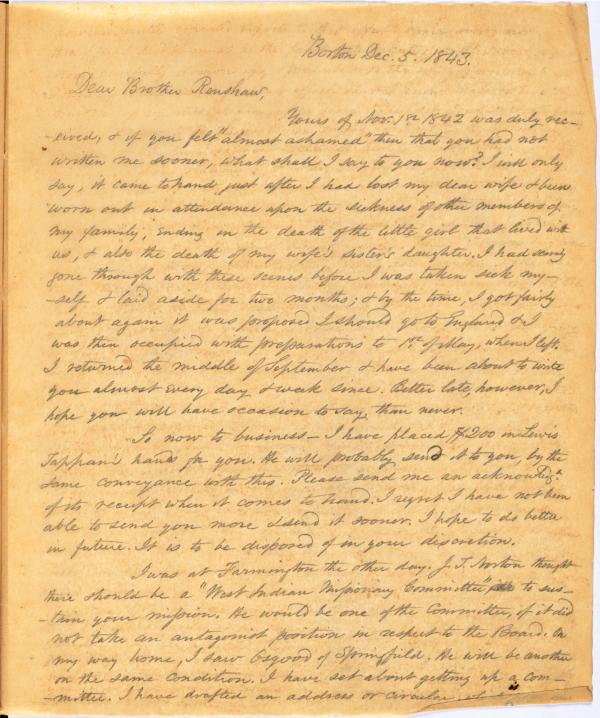 Boston Dec. 5. 1843.
Dear Brother Renshaw,
Yours of Nov. 1st 1842 was duly rec-
-eived, & if you felt "almost ashamed" then that you had not
written me sooner, what shall I say to you now? I will only
say, it came to hand just after I had lost my dear wife & been
worn out in attendance upon the sickness of other members of
my family, ending in the death of the little girl that lived with
us, & also the death of my wife's sister's daughter. I had scarcely
gone through with these scenes before I was taken sick my-
-self & laid aside for two months; & by the time, I got fairly
about again it was proposed I should go to England & I
was then occupied with preparations to 1st of May, when I left.
I returned the middle of September & have been about to write
you almost every day & week since. Better late, however, I
hope you will have occasion to say, than never.
So now to business – I have placed $200 in Lewis
Tappan's hands for you. He will probably send it to you, by the
same conveyance with this. Please send me an acknow
of its receipt when it comes to hand. I regret I have not been
able to send you more & send it sooner. I hope to do better
in future. It is to be disposed of in your discretion.
I was at Farmington the other day. J. T. Norton thought
there should be a "West Indian Missionary Committee" to sus-
tain your mission. He would be one of the Committee, if it did
not take an antagonist position in respect to the Board. On
my way home, I saw Osgood of Springfield. He will be another
on the same condition. I have set about getting up a com-
-mittee. I have drafted an address or circular